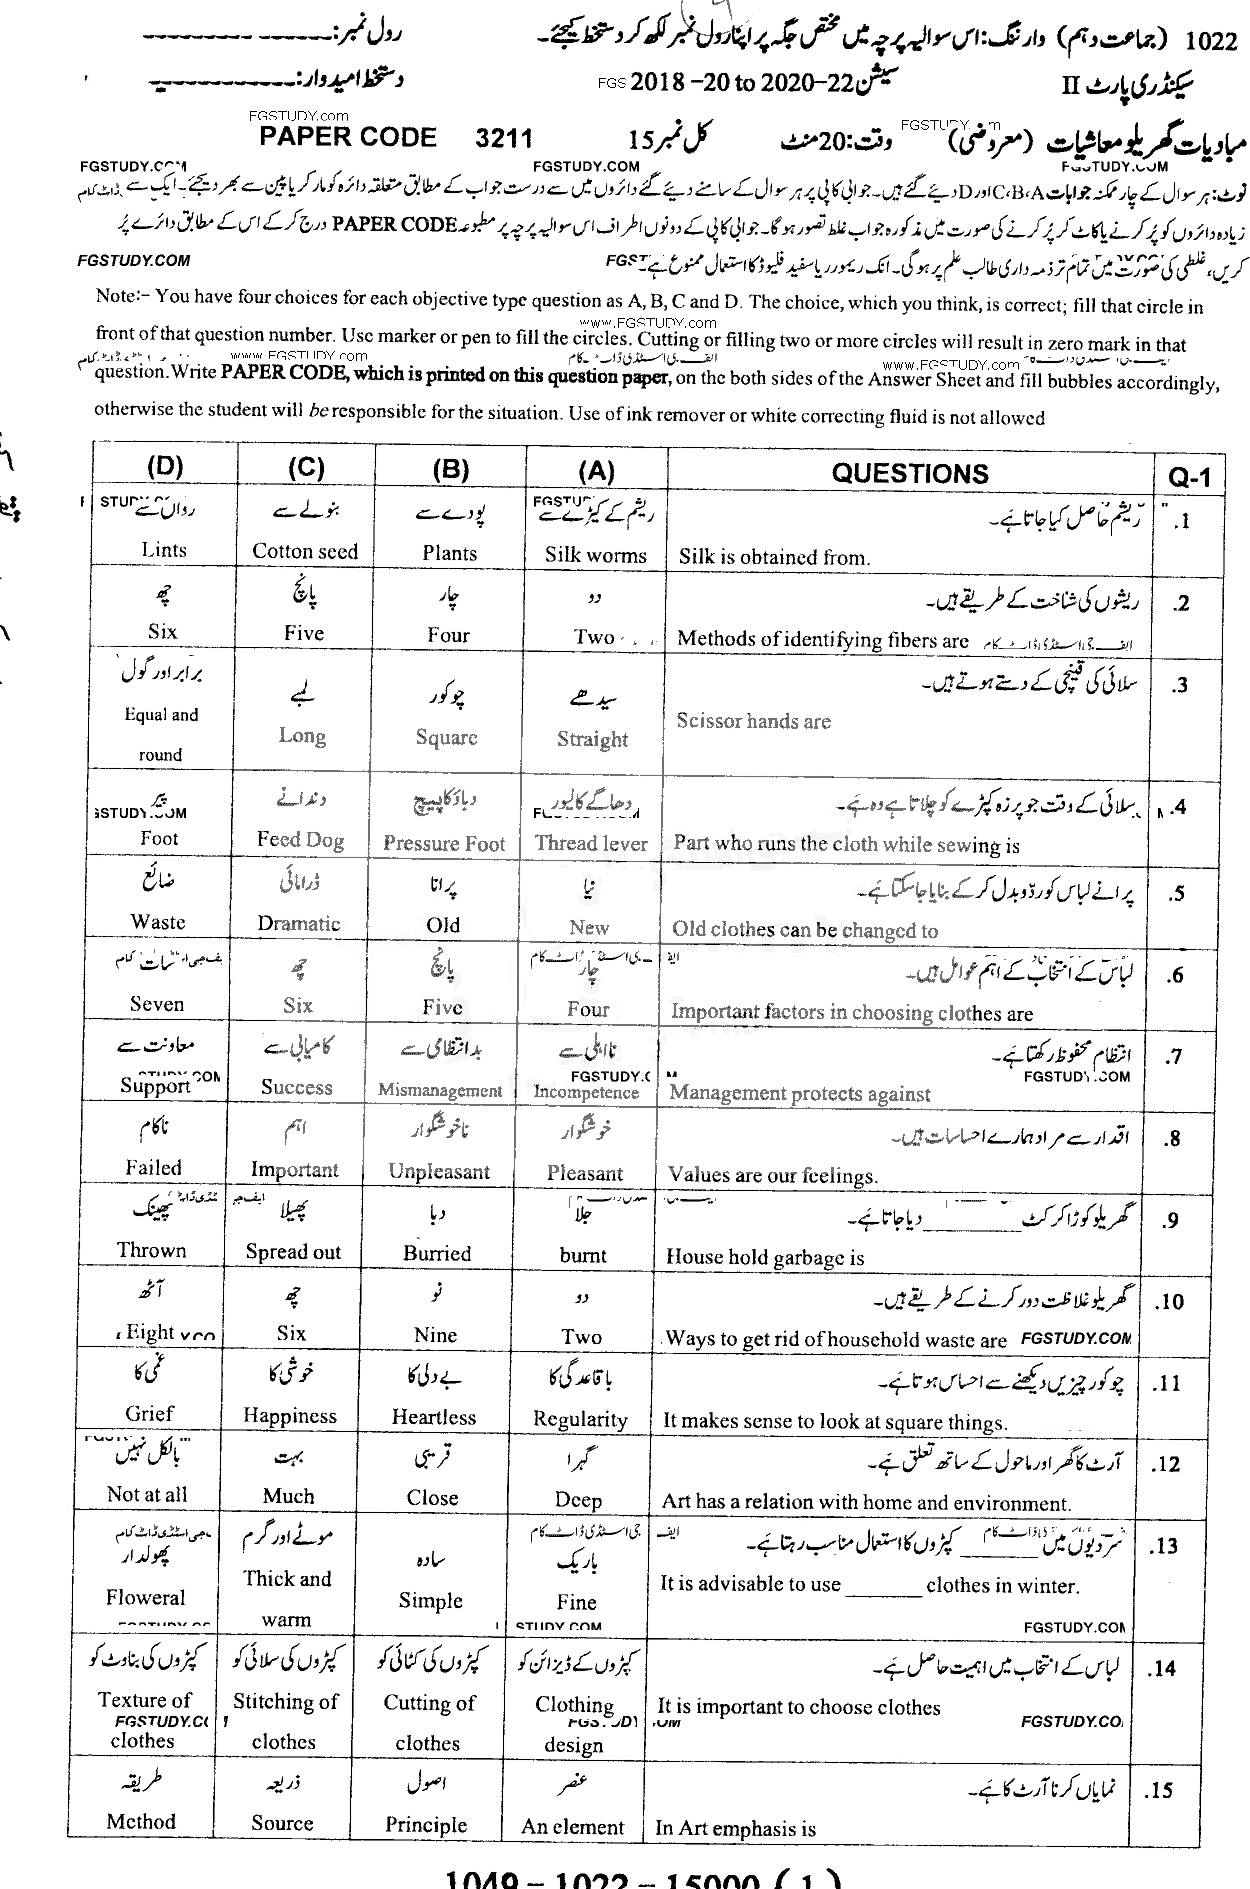 1022 (جماعت دہم) وارننگ: اس سوالیہ پرچہ میں مختص جگہ پر اپنا رول نمبر لکھ کر دستخط کیجئے۔ رول نمبر:
سیکنڈری پارٹ II سیشن 2018-20 to 2020-22 FGS دستخط امیدوار:
FGSTUDY.com
مبادیات گھریلو معاشیات (معروضی) وقت: 20 منٹ کل نمبر 15 PAPER CODE 3211
FGSTUDY.COM FGSTUDY.COM
نوٹ: ہر سوال کے چار ممکنہ جوابات A،B،C اور D دیئے گئے ہیں۔ جوابی کاپی پر ہر سوال کے سامنے دیئے گئے دائروں میں سے درست جواب کے مطابق متعلقہ دائرہ کو مارکر یا پین سے بھر دیجئے۔ ایک سے
زیادہ دائروں کو پُر کرنے یا کاٹ کر پُر کرنے کی صورت میں مذکورہ جواب غلط تصور ہو گا۔ جوابی کاپی کے دونوں اطراف اس سوالیہ پرچہ پر مطبوعہ PAPER CODE درج کر کے اس کے مطابق دائرے پُر
کریں، غلطی کی صورت میں تمام تر ذمہ داری طالب علم پر ہوگی۔ انک ریموور یا سفید فلیوڈ کا استعمال ممنوع ہے۔ FGSTUDY.COM
Note:- You have four choices for each objective type question as A, B, C and D. The choice, which you think, is correct; fill that circle in
www.FGSTUDY.com
front of that question number. Use marker or pen to fill the circles. Cutting or filling two or more circles will result in zero mark in that
www.FGSTUDY.com www.FGSTUDY.com
question. Write PAPER CODE, which is printed on this question paper, on the both sides of the Answer Sheet and fill bubbles accordingly,
otherwise the student will be responsible for the situation. Use of ink remover or white correcting fluid is not allowed
(D) (C) (B) (A) QUESTIONS Q-1
.1 ریشم حاصل کیا جاتا ہے۔ ریشم کے کیڑے سے پودے سے بنولے سے رواں سے
Lints Cotton seed Plants Silk worms Silk is obtained from.
.2 ریشوں کی شناخت کے طریقے ہیں۔ دو چار پانچ چھ
Six Five Four Two Methods of identifying fibers are
.3 سلائی کی قینچی کے دستے ہوتے ہیں۔ سیدھے چوکور لمبے برابر اور گول
Equal and round Long Square Straight Scissor hands are
.4 سلائی کے وقت جو پرزہ کپڑے کو چلاتا ہے وہ ہے۔ دھاگے کا لیور دباؤ کا پیچ دندانے پیر
Foot Feed Dog Pressure Foot Thread lever Part who runs the cloth while sewing is
.5 پرانے لباس کو ردوبدل کر کے بنایا جا سکتا ہے۔ نیا پرانا ڈرامائی ضائع
Waste Dramatic Old New Old clothes can be changed to
.6 لباس کے انتخاب کے اہم عوامل ہیں۔ چار پانچ چھ سات
Seven Six Five Four Important factors in choosing clothes are
.7 انتظام محفوظ رکھتا ہے۔ نااہلی سے بدانتظامی سے کامیابی سے معاونت سے
FGSTUDY.COM
Support Success Mismanagement Incompetence Management protects against
.8 اقدار سے مراد ہمارے احساسات ہیں۔ خوشگوار ناخوشگوار اہم ناکام
Failed Important Unpleasant Pleasant Values are our feelings.
.9 گھریلو کوڑا کرکٹ ________ دیا جاتا ہے۔ جلا دبا پھیلا پھینک
Thrown Spread out Burried burnt House hold garbage is
.10 گھریلو غلاظت دور کرنے کے طریقے ہیں۔ دو نو چھ آٹھ
Eight Six Nine Two Ways to get rid of household waste are FGSTUDY.COM
.11 چوکور چیزیں دیکھنے سے احساس ہوتا ہے۔ باقاعدگی کا بے دلی کا خوشی کا غمی کا
Grief Happiness Heartless Regularity It makes sense to look at square things.
.12 آرٹ کا گھر اور ماحول کے ساتھ تعلق ہے۔ گہرا قریبی بہت بالکل نہیں
Not at all Much Close Deep Art has a relation with home and environment.
.13 سردیوں میں ________ کپڑوں کا استعمال مناسب رہتا ہے۔ باریک سادہ موٹے اور گرم پھولدار
Floweral Thick and warm Simple Fine It is advisable to use _______ clothes in winter.
.14 لباس کے انتخاب میں اہمیت حاصل ہے۔ کپڑوں کے ڈیزائن کو کپڑوں کی کٹائی کو کپڑوں کی سلائی کو کپڑوں کی بناوٹ کو
Texture of clothes Stitching of clothes Cutting of clothes Clothing design It is important to choose clothes
.15 نمایاں کرنا آرٹ کا ہے۔ عنصر اصول ذریعہ طریقہ
Method Source Principle An element In Art emphasis is
1049 – 1022 – 15000 ( 1 )